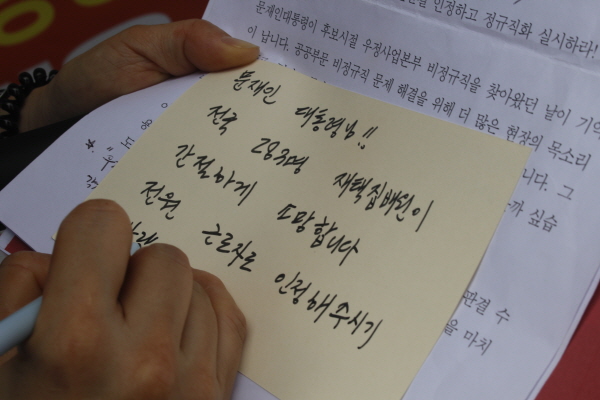 인정하고 정규직화 실시하라!
문재인대통령이 후보시절 우정사업본부 비정규직을 찾아왔던 날이 기억
이 납니다. 공공부문 비정규직 문제 해결을 위해 더 많은 현장의 목소리
니다. 그
까 싶습
판결 수
을 마치
문재인 대통령님!!
전국 283명 재택집배원이
간절하게 소망합니다
전원 근로자로 인정해주시기